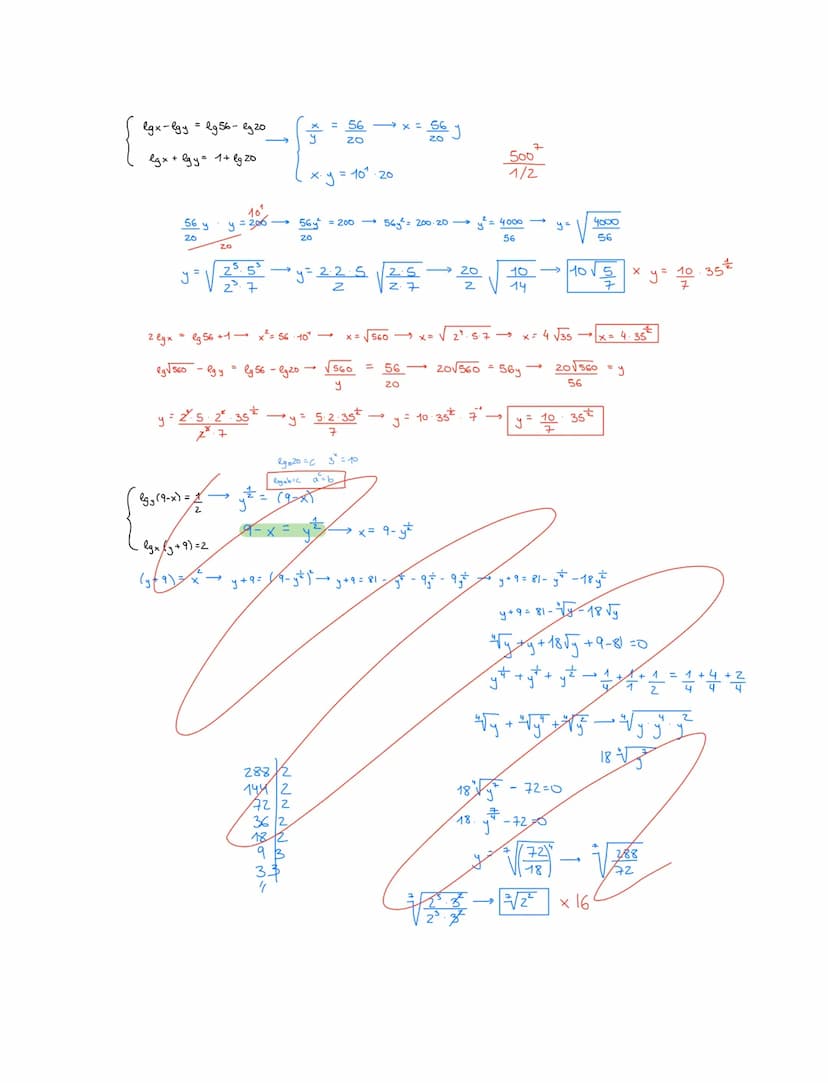 lgx - lgy = lg56 - lg20 → x/y = 56/20 → x = 56/20 y
lgx + lgy = 1 + lg20
x · y = 10¹ · 20
500⁷/1/2
56/20 y · y = 200 10¹ 20 → 56y²/20 = 200 → 56y² = 200·20 → y² = 4000/56 → y = √4000/56
y = √2⁵·5³/2³·7 → y = 2·2·5/2 √2·5/2·7 → 20/2 √10/14 → 10√5/7 × y = 10/7 · 35^1/2
2lgx = lg56 + 1 → x² = 56·10¹ → x = √560 → x = √2⁴·5·7 → x = 4√35 → x = 4·35^1/2
lg√560 - lgy = lg56 - lg20 → √560/y = 56/20 → 20√560 = 56y → 20√560/56 = y
y = 2²·5·2²·35^1/2/2³·7 → y = 5·2·35^1/2/7 → y = 10·35^1/2·7⁻¹ → y = 10/7 · 35^1/2
3^x = 10
a^c = b
lgy(9-x) = 1/2 → y^1/2 = (9-x)
9-x = y^1/2 → x = 9-y^1/2
lgx(y+9) = 2
(y+9) = x² → y+9 = (9-y^1/2)² → y+9 = 81 - y^1/4 - 9y^1/2 - 9y^1/2 → y+9 = 81 - y^1/4 - 18y^1/2
y+9 = 81 - ⁴√y - 18√y
⁴√y + y + 18√y + 9 - 81 = 0
y^1/4 + y^1/1 + y^1/2 → 1/4 + 1/1 + 1/2 = 1/4 + 4/4 + 2/4
⁴√y + ⁴√y⁴ + ⁴√y² → ⁴√y·y⁴·y²
18 ⁴√y⁷
288 2
144 2
72 2
36 2
18 2
9 3
3 3
18⁴√y⁷ - 72 = 0
18·y^7/4 - 72 = 0
y = ⁷√(72/18)⁴ → ⁷√288/72
⁷√2⁵·3²/2³·3² → ⁷√2² × 16